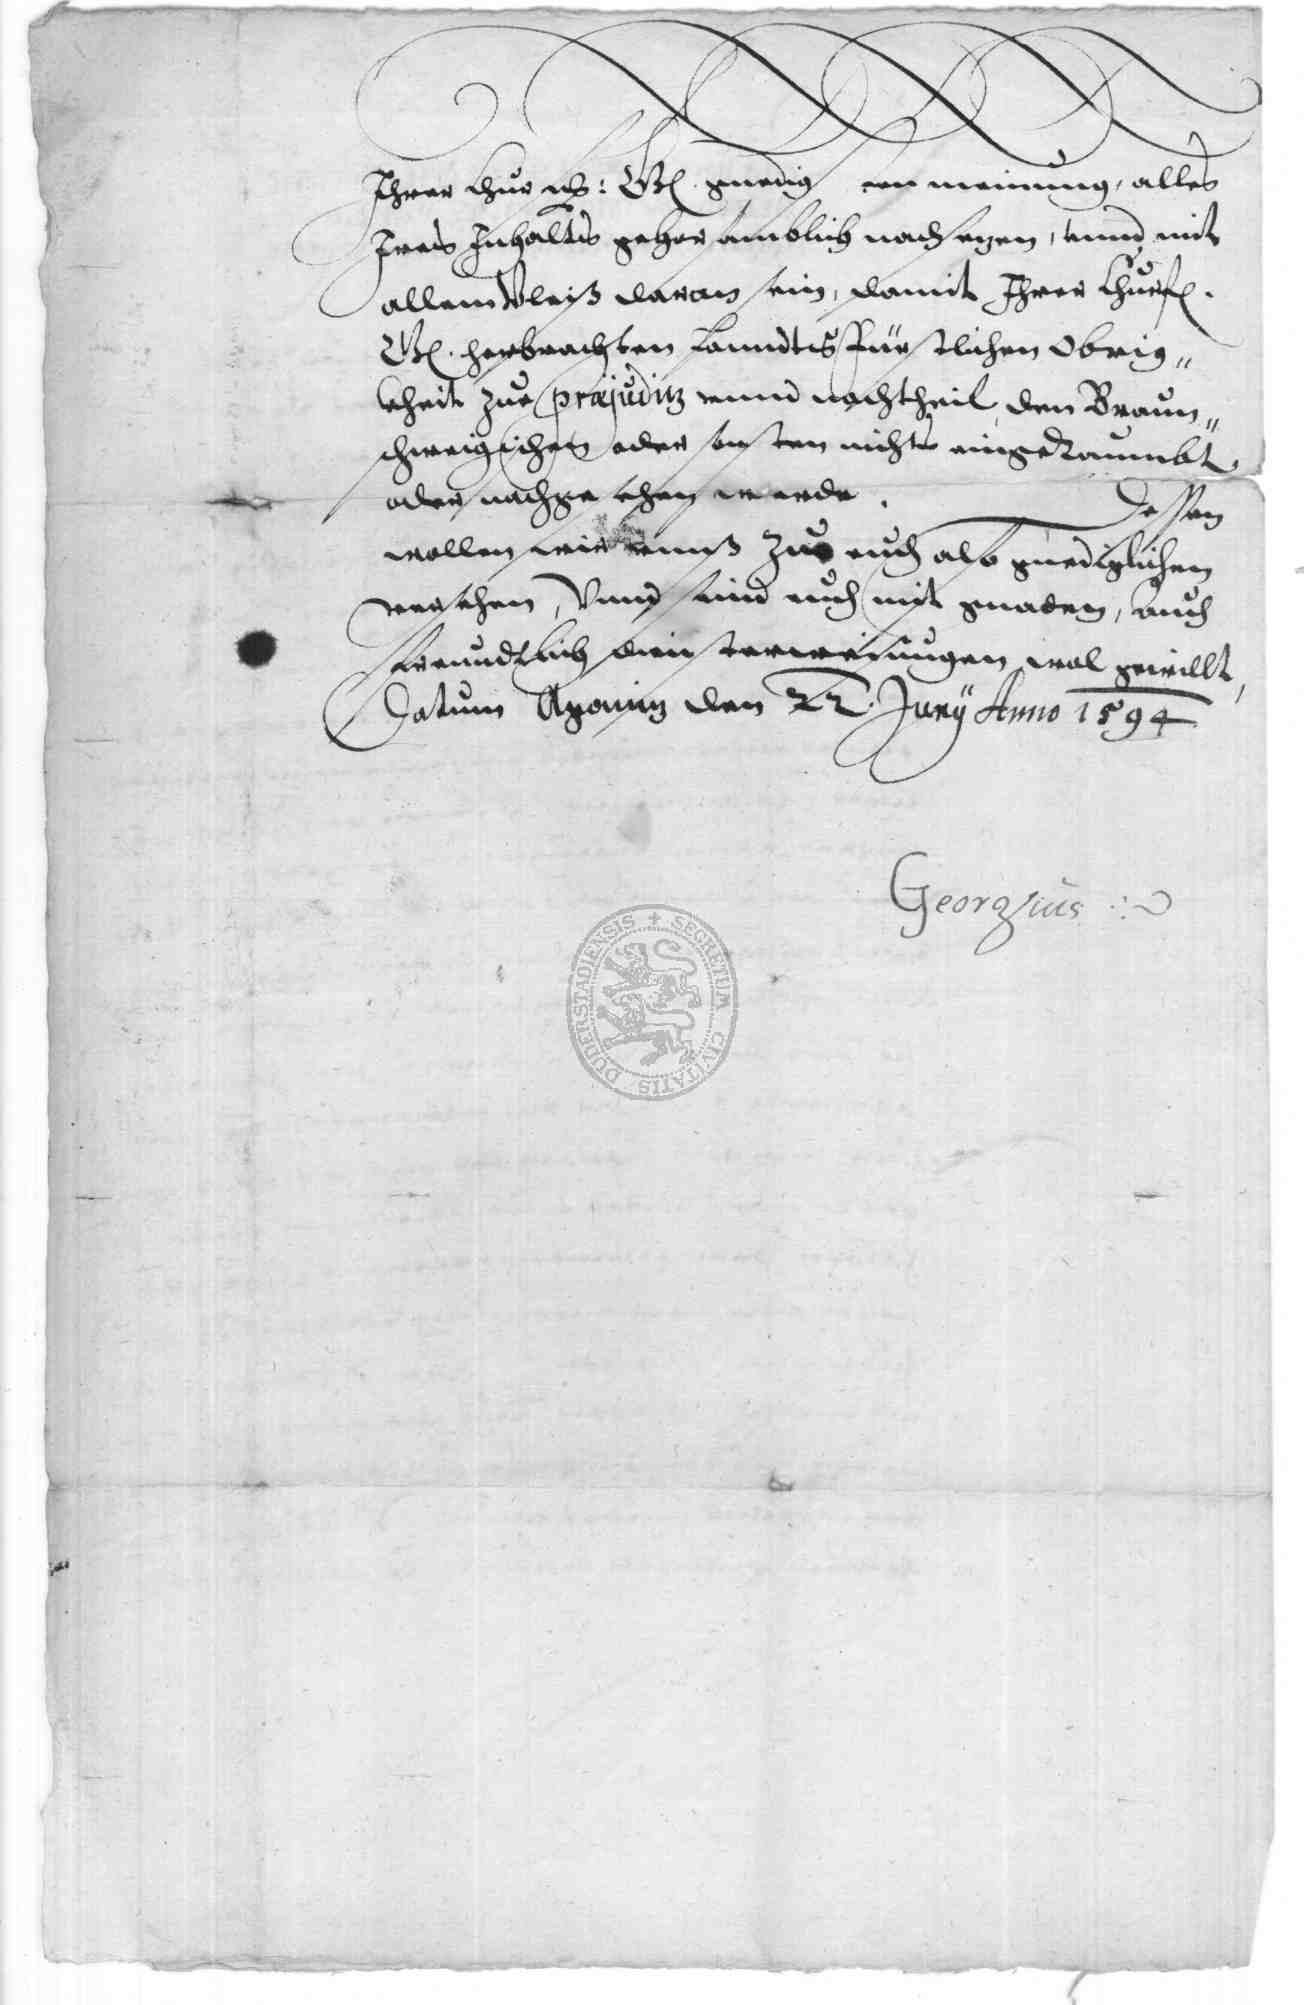 Ihrer Churfs: Gl. gnedigsten meinung, alles
Ires Inhaltes gehorsamblich nachsetzen, vnnd mit
allem Vleiß daran sein, damit Ihrer Churfl.
Gl. herbrachten Lanndtsfürstlichen Obrig„
kheit zue præjuditz vnnd nachtheil, den Braun„
schweigischen oder sonsten nichts eingeraumbt
oder nachgesehen werde. Dessen
wollen wir vnnß zue euch also gnediglichen
versehen, Vnnd seind euch mit gnaden, auch
freundtlich wol gewillt,
Datum den 22. Junÿ Anno 1594
Georgius
SECRETUM CIVITATIS DUDERSTADIENSIS